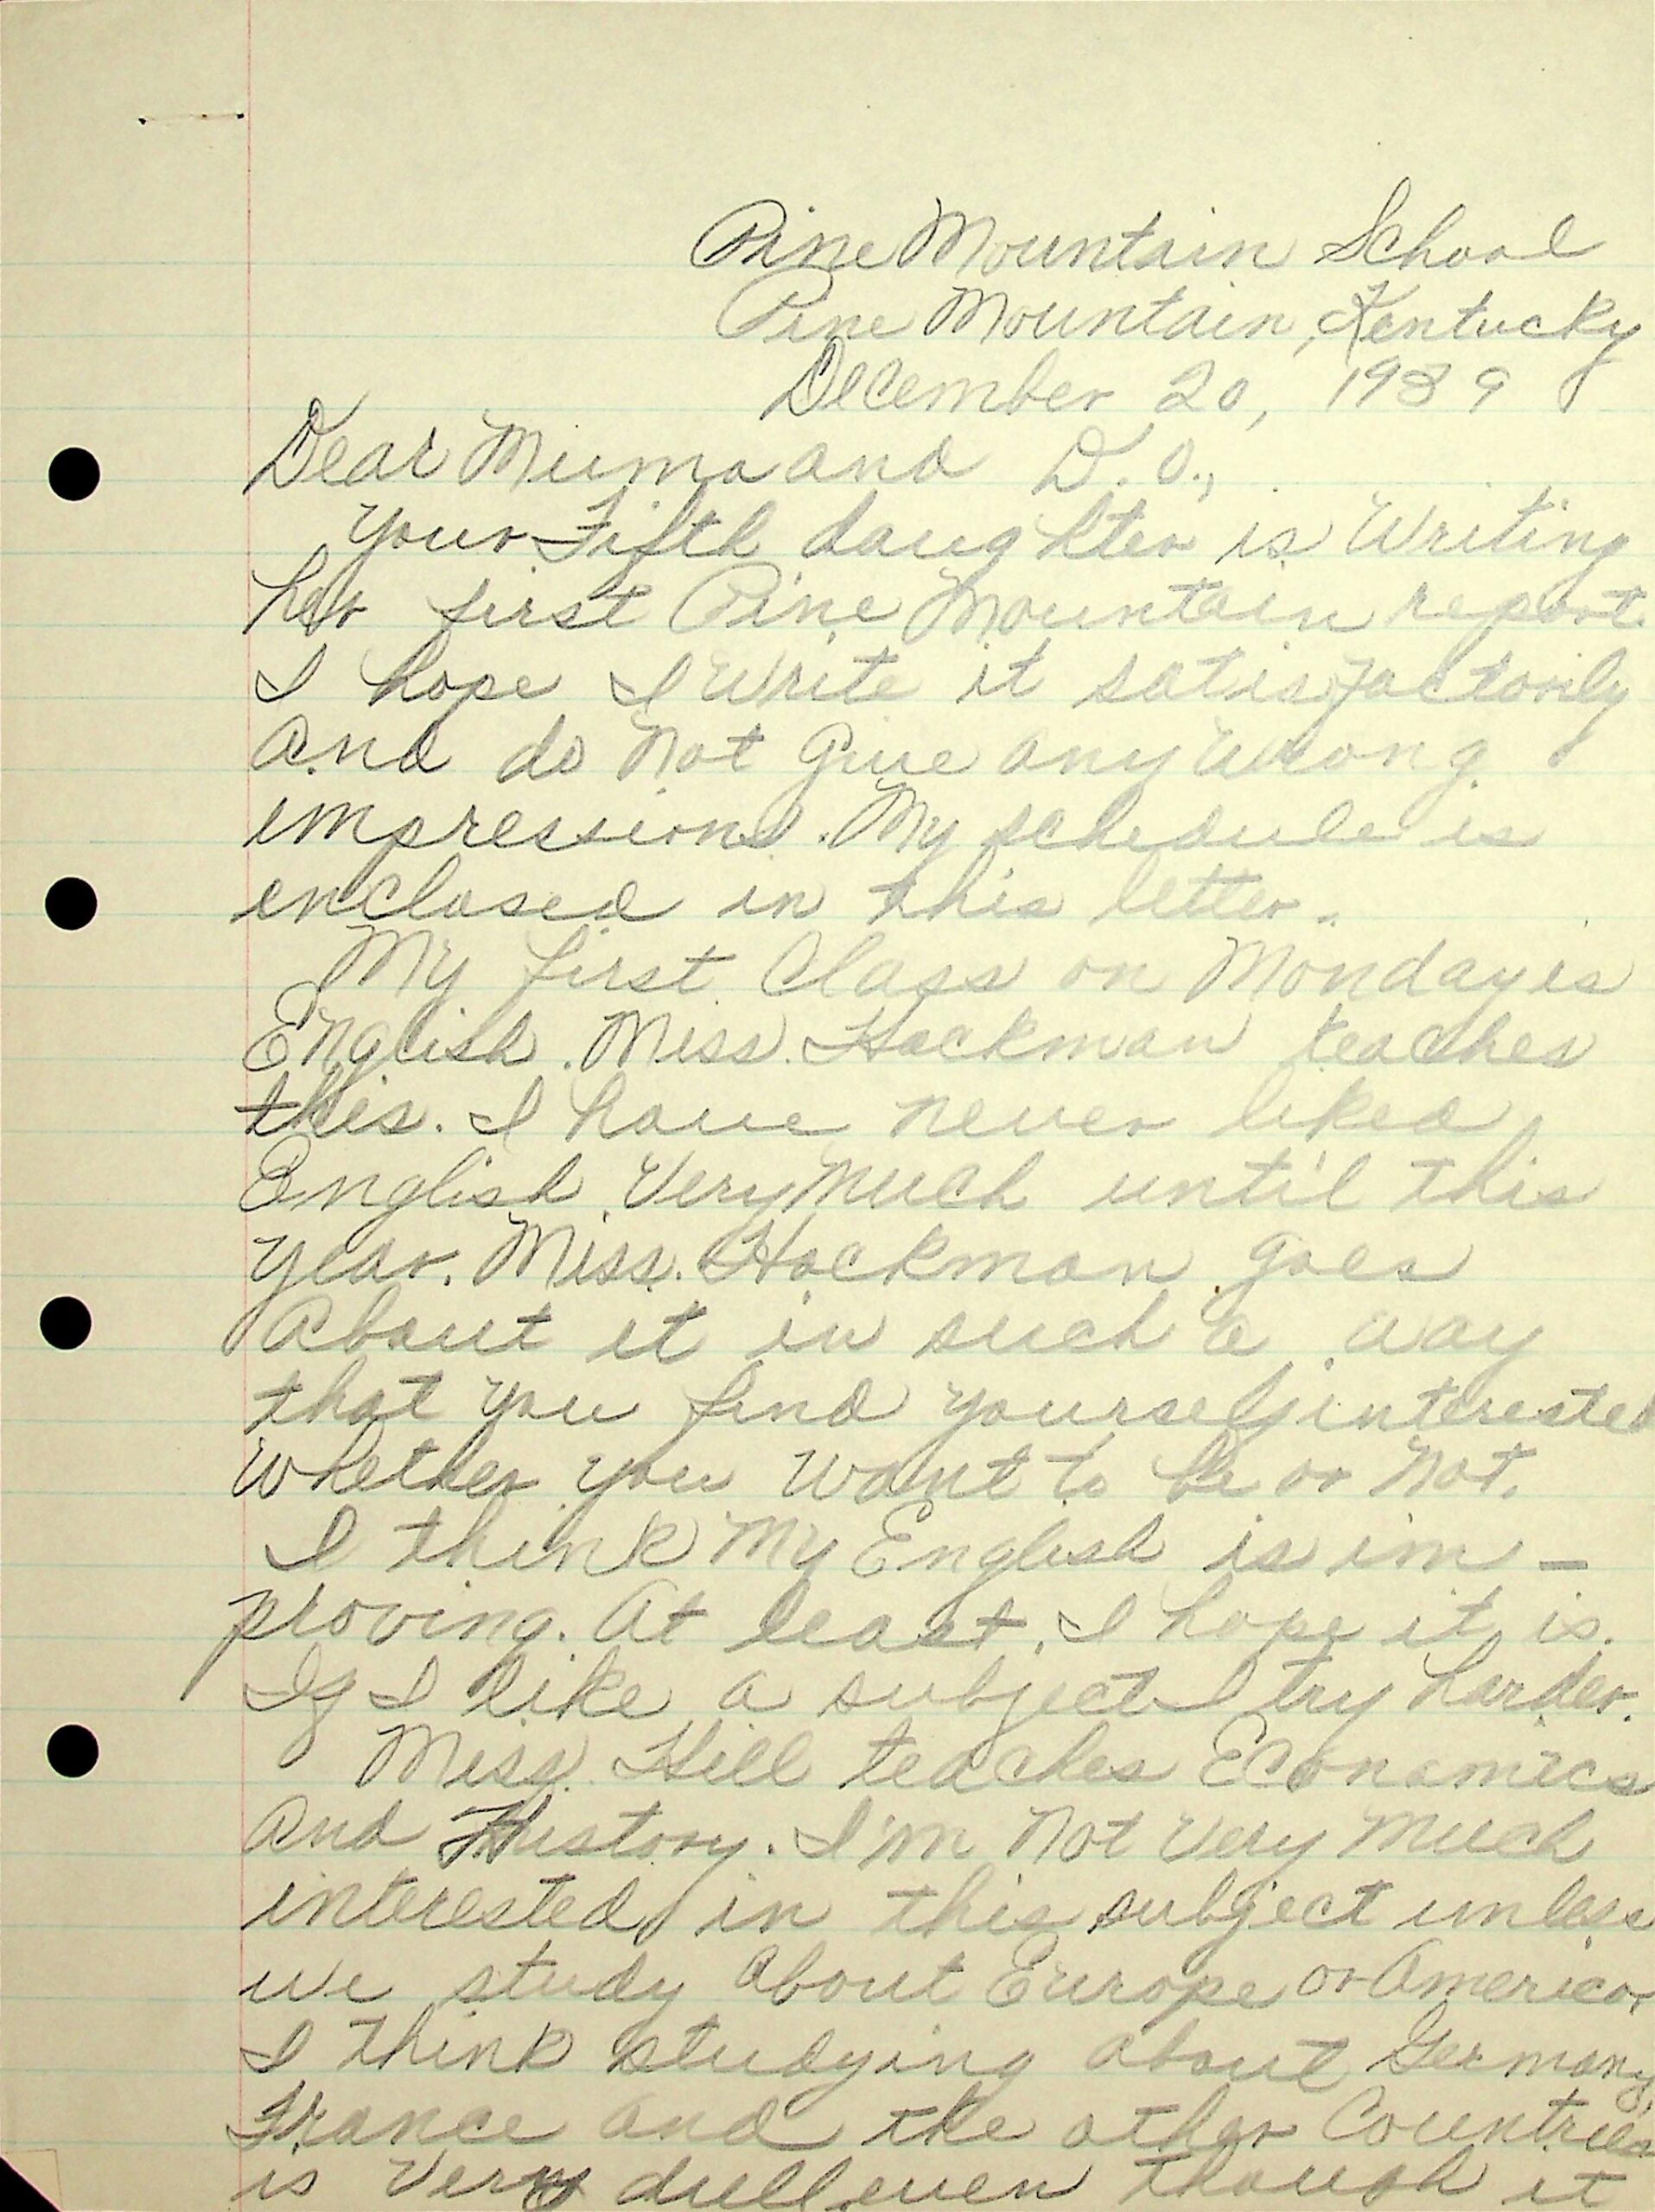 Pine Mountain School
Pine Mountain, Kentucky
December 20, 1939
Dear Muma and D. O.,
Your Fifth daughter is Writing
her first Pine Mountain report.
I hope I Write it satisfactorily
and do not give any wrong
impressions. My schedule is
enclosed in this letter.
My first Class on Monday is
English. Miss. Hockman teaches
this. I have never liked
English Very Much until this
year. Miss. Hockman goes
about it in such a way
that you find yourself interested
whether you want to be or not.
I think My English is im-
proving. At least, I hope it is.
If I like a subject I try harder.
Miss. Hill teaches Economics
and History. I'm Not Very Much
interested in this subject unless
we study about Europe or America.
I think studying about Germany,
France and the other Countries
is Very dull, even though it